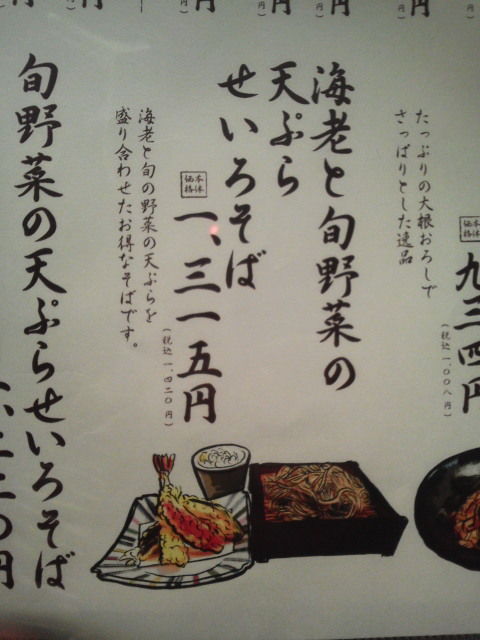 たっぷりの大根おろしで
さっぱりとした逸品
本体価格
九三四円
(税込 一、〇〇八円)
海老と旬野菜の
天ぷら
せいろそば
本体価格
一、三一五円
(税込 一、四二〇円)
海老と旬の野菜の天ぷらを
盛り合わせたお得なそばです。
旬野菜の天ぷらせいろそば